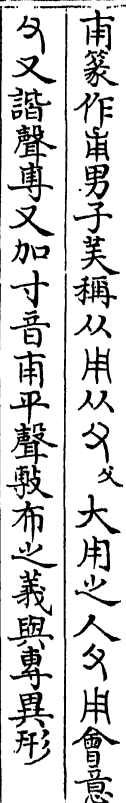 甫篆作甫男子美稱从用从父父大用之人父用會意
父又諧聲尃又加寸音甫平聲敷布之義與專異形